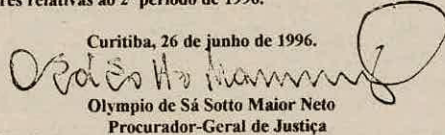 res relativas ao 2º período de 1996.
Curitiba, 26 de junho de 1996.
Olympio de Sá Sotto Maior Neto
Procurador-Geral de Justiça